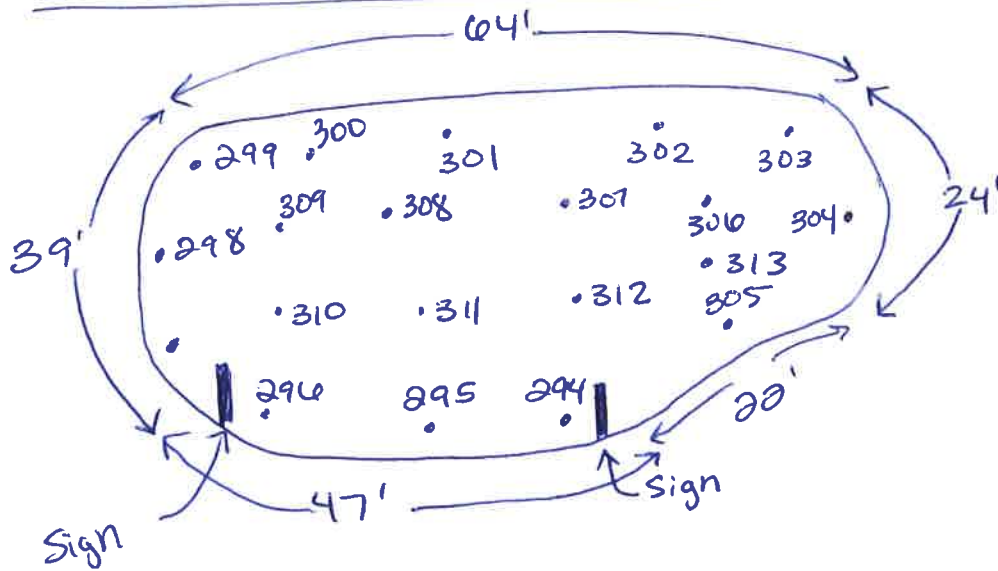 64'
299
300
301
302
303
309
308
307
306
304
24'
39'
298
313
310
311
312
305
296
295
294
22'
47'
Sign
Sign